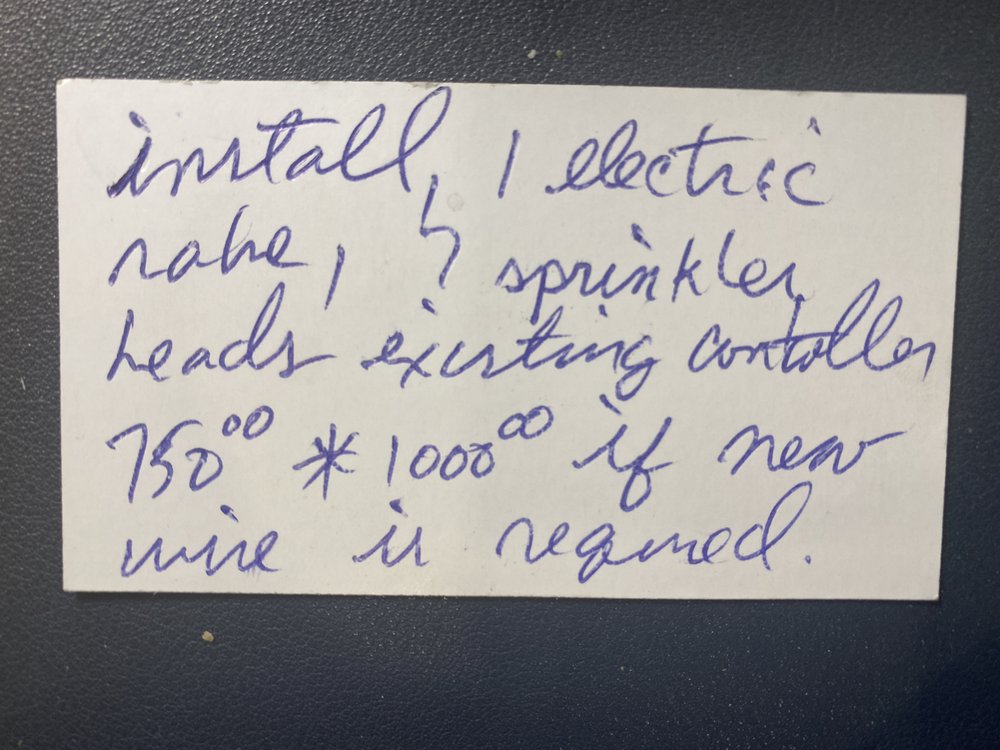 install, 1 electric
valve, 5 sprinkler
heads existing contoller
750⁰⁰ * 1000⁰⁰ if new
wire is required.